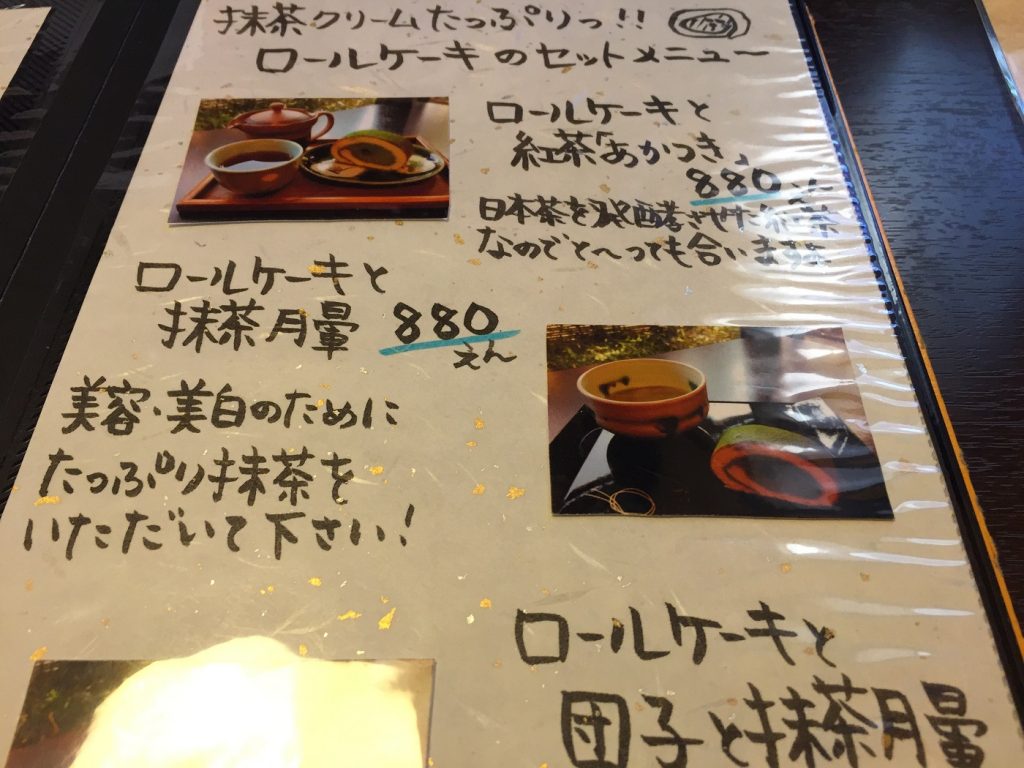 抹茶クリームたっぷりっ!!
ロールケーキのセットメニュー
ロールケーキと
紅茶「あかつき」
880えん
日本茶を発酵させた紅茶
なのでと〜っても合います
ロールケーキと
抹茶月暈 880
えん
美容・美白のために
たっぷり抹茶を
いただいて下さい!
ロールケーキと
団子と抹茶月暈